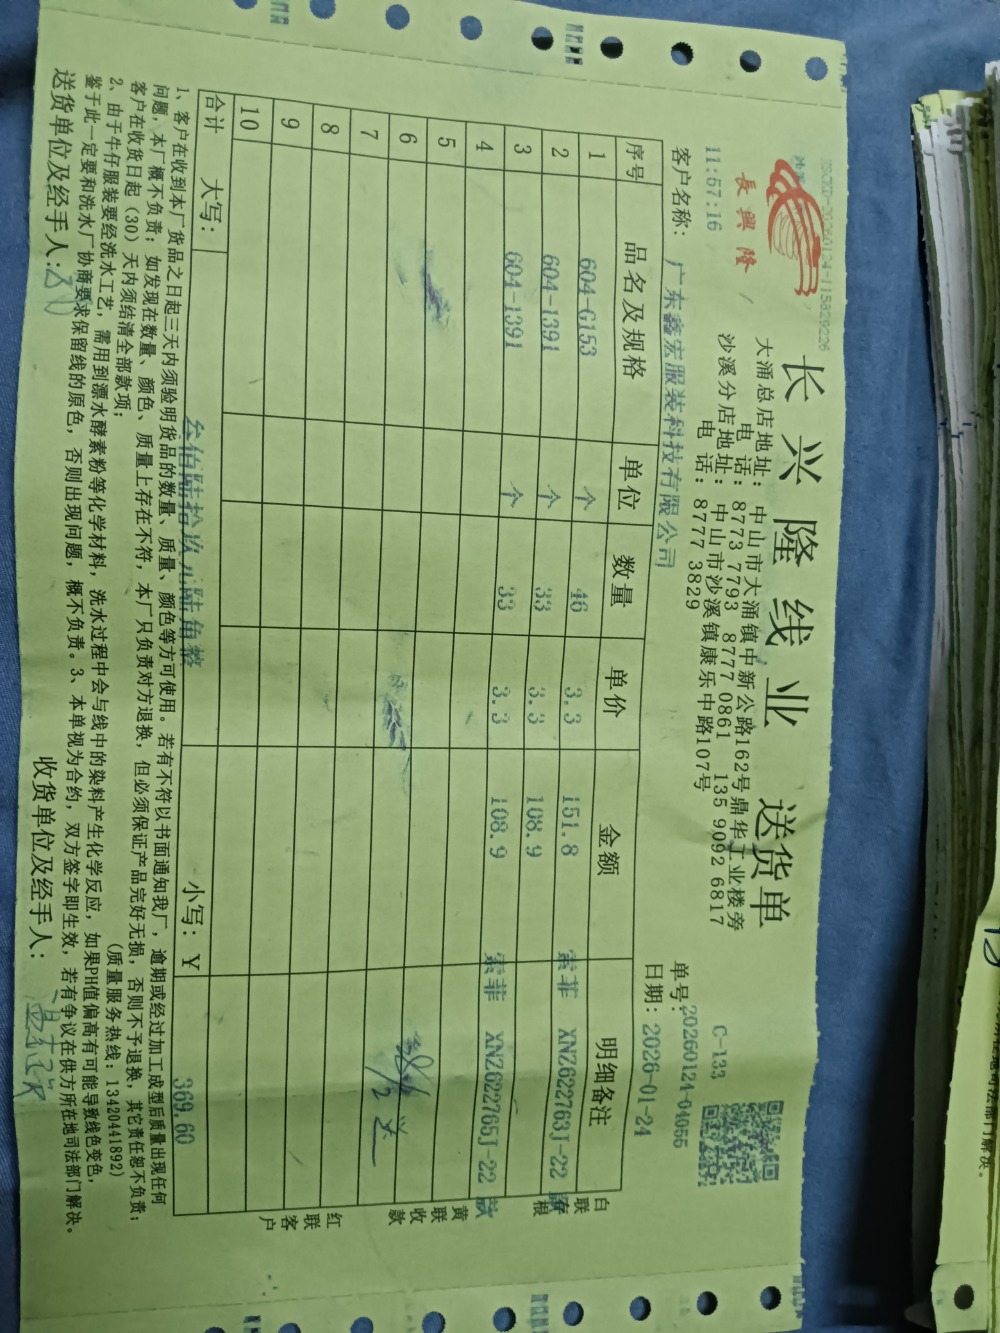 長興隆
长兴隆线业 送货单
大涌总店地址：中山市大涌镇中新公路162号鼎华工业楼旁
电 话：8773 7793 8777 0861 135 9092 6817
沙溪分店地址：中山市沙溪镇康乐中路107号
电 话：8777 3829
C-133
11:57:16
单号：20260124-04055
客户名称：广东鑫宏服装科技有限公司
日期：2026-01-24
序号 品名及规格 单位 数量 单价 金额 明细备注
1 604-G153 个 46 3.3 151.8 索菲 XNZ622763J-22
2 604-1391 个 33 3.3 108.9
3 604-1391 个 33 3.3 108.9 索菲 XNZ622765J-22
4
5
6
7
8
9
10
合计 大写： 叁佰陆拾玖元陆角整 小写：￥ 369.60
白联存根
黄联收款
红联客户
1、客户在收到本厂货品之日起三天内须验明货品的数量、质量、颜色等方可使用。若有不符以书面通知我厂，逾期或经过加工成型后质量出现任何
问题，本厂概不负责；如发现在数量、颜色、质量上存在不符，本厂只负责对方退换，但必须保证产品完好无损，否则不予退换，其它责任恕不负责；
客户在收货日起（30）天内须结清全部款项；
(质量服务热线：13420441892)
2、由于牛仔服装要经洗水工艺，需用到漂水酵素粉等化学材料，洗水过程中会与线中的染料产生化学反应，如果PH值偏高有可能导致线色变色，
鉴于此一定要和洗水厂协商要求保留线的原色，否则出现问题，概不负责。3、本单视为合约，双方签字即生效，若有争议在供方所在地司法部门解决。
送货单位及经手人：
收货单位及经手人：
司法部门解决。